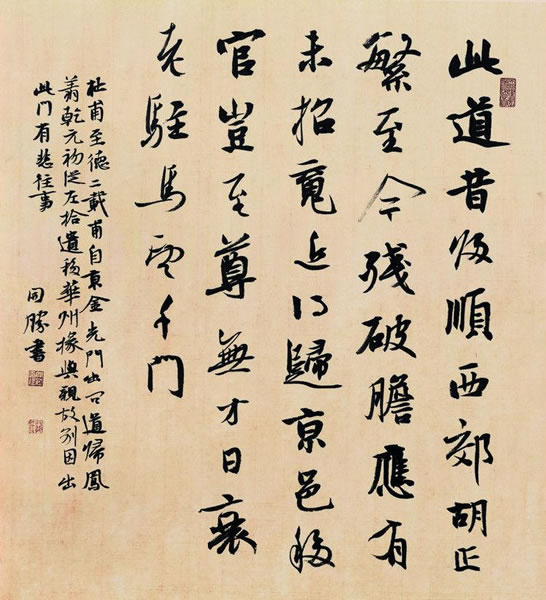 此道昔歸順西郊胡正
繁至今殘破膽應有
未招魂近得歸京邑移
官豈至尊無才日衰
老駐馬望千門
杜甫至德二載甫自京金光門出間道歸鳳
翔乾元初從左拾遺移華州掾與親故別因出
此門有悲往事
同勝書